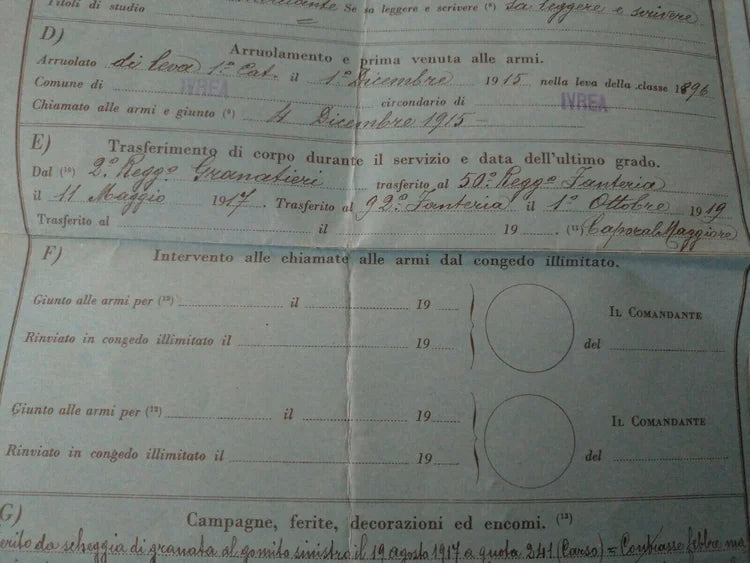 Titoli di studio Se sa leggere e scrivere (6) sa leggere e scrivere
D)
Arruolamento e prima venuta alle armi.
Arruolato di leva 1ª Cat. il 1º Dicembre 1915 nella leva della classe 1896
Comune di IVREA circondario di IVREA
Chiamato alle armi e giunto (9) 4 Dicembre 1915 -
E)
Trasferimento di corpo durante il servizio e data dell'ultimo grado.
Dal (10) 2º Regg.º Granatieri trasferito al 50º Regg.º Fanteria
il 11 Maggio 1917. Trasferito al 92º Fanteria il 1º Ottobre 1919
Trasferito al il 19 (11) Caporal Maggiore
F)
Intervento alle chiamate alle armi dal congedo illimitato.
Giunto alle armi per (12) il 19
Rinviato in congedo illimitato il 19
IL COMANDANTE
del
Giunto alle armi per (12) il 19
Rinviato in congedo illimitato il 19
IL COMANDANTE
del
G)
Campagne, ferite, decorazioni ed encomi. (13)
da scheggia di granata al gomito sinistro il 19 agosto 1917 a quota 241 (Carso) = Contrasse febbre